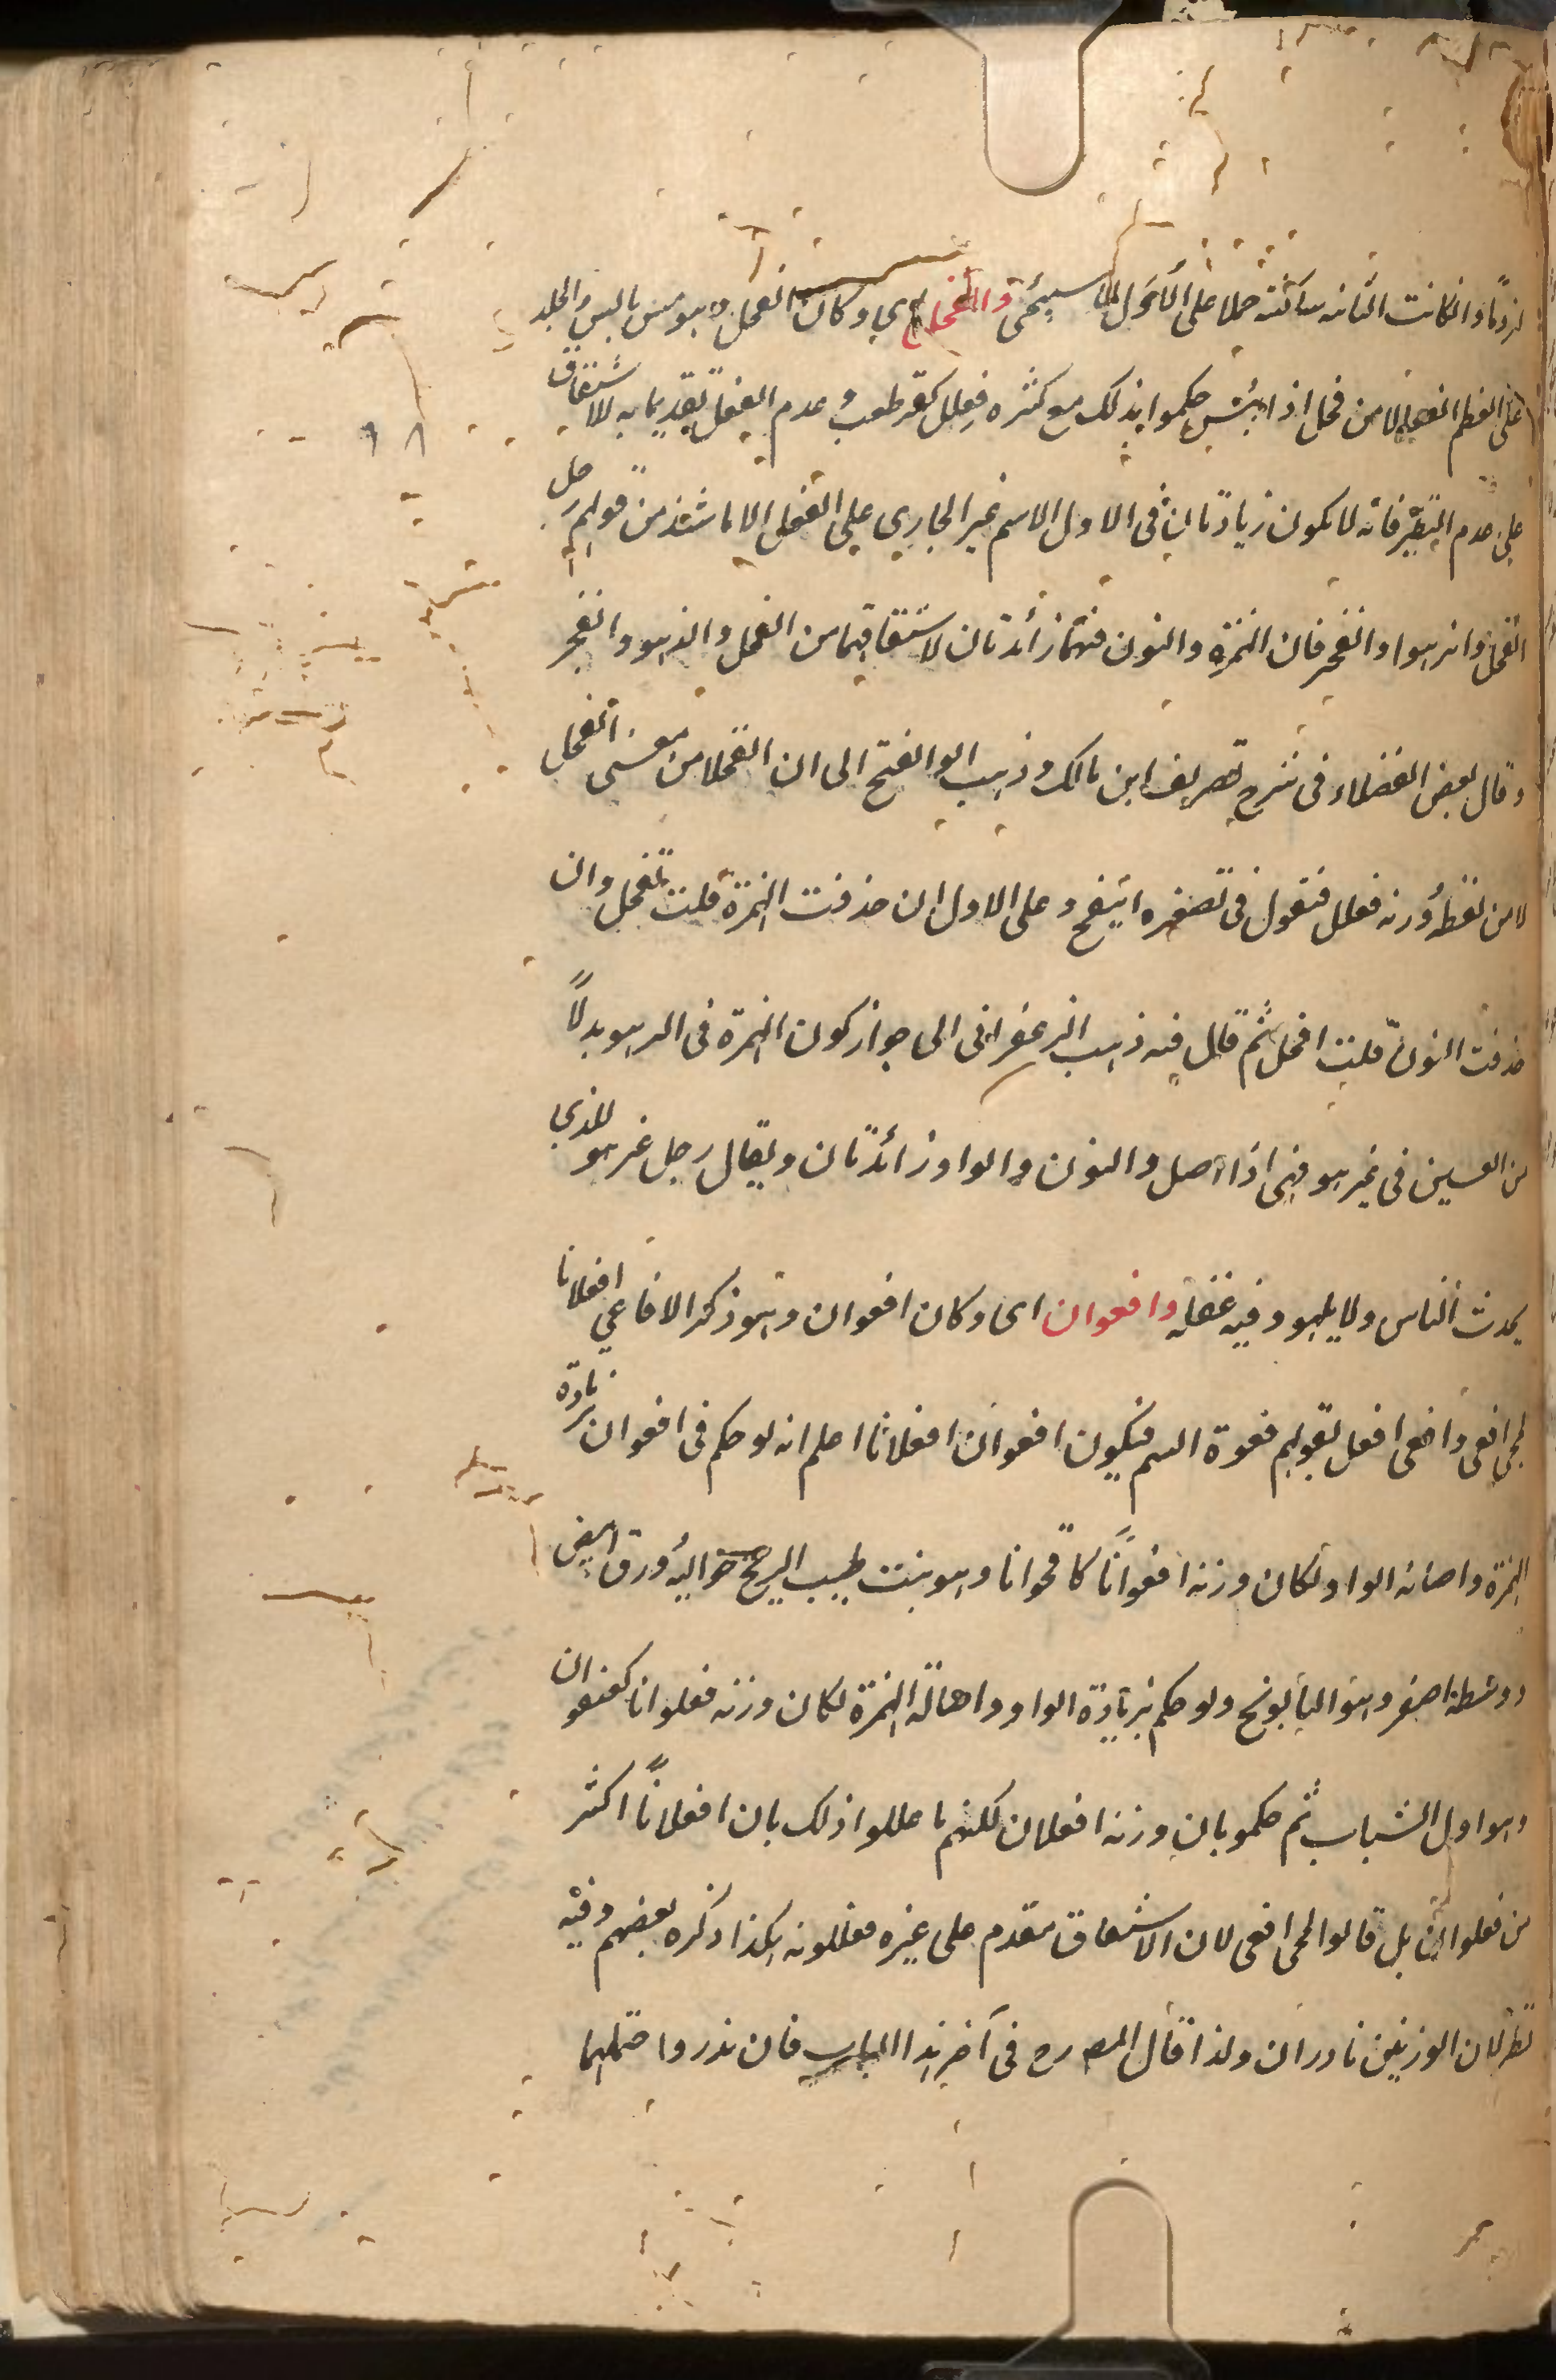 لزوما وان كانت الثانية ساكنة حملا على الأول لما سيجئ وانقحل اي وكان انقحل وهو من يابس الجلد
على العظم انفعلا من قحل اذا يبس حكموا بذلك مع كثرة فعلل كقرطعب وعدم انفعل تقديما به للاشتقاق
على عدم النظير فانه لا يكون زيادتان في الاول الاسم غير الجاري على الفعل الا ما شذ من قولهم رجل
انقحل وانزهو وانفخر فان الهمزة والنون فيها زائدتان لاشتقاقها من القحل والزهو والفخر
وقال بعض الفضلاء في شرح تصريف ابن مالك وذهب ابو الفتح الى ان انقحلا من معنى القحل
لا من لفظه وزنه فعلل فتقول في تصغيره انيقح وعلى الاول ان حذفت الهمزة قلت نقيحل وان
حذفت النون قلت اقيحل ثم قال فيه ذهب الزعفراني الى جواز كون الهمزة في انزهو بدلاً
من العين في عنزهو فهي اذا اصل والنون والواو زائدتان ويقال رجل عنزهو للذي
يحدث الناس ولا يلهو وفيه غفلة وافعوان اى وكان افعوان وهو ذكر الافاعي افعلانا
لمجئ افعى وافعى افعل لقولهم فعوة السم فيكون افعوان افعلانا اعلم انه لو حكم في افعوان بزيادة
الهمزة واصالة الواو لكان وزنه افعوانًا كاقحوانا وهو نبت طيب الريح حواليه ورق ابيض
ووسطه اصفر وهو البابونج ولو حكم بزيادة الواو واصالة الهمزة لكان وزنه فعلوانا كعنفوان
وهو اول الشباب ثم حكمو بان وزنه افعلان لكنهم ما عللوا ذلك بان افعلانًا اكثر
من فعلوان بل قالوا لمجئ افعى لان الاشتقاق مقدم على غيره فعللونه هكذا ذكره بعضهم وفيه
نظر لان الوزنين نادران ولذا قال المصـ رح في آخر هذا الباب فان ندر واحتملهما